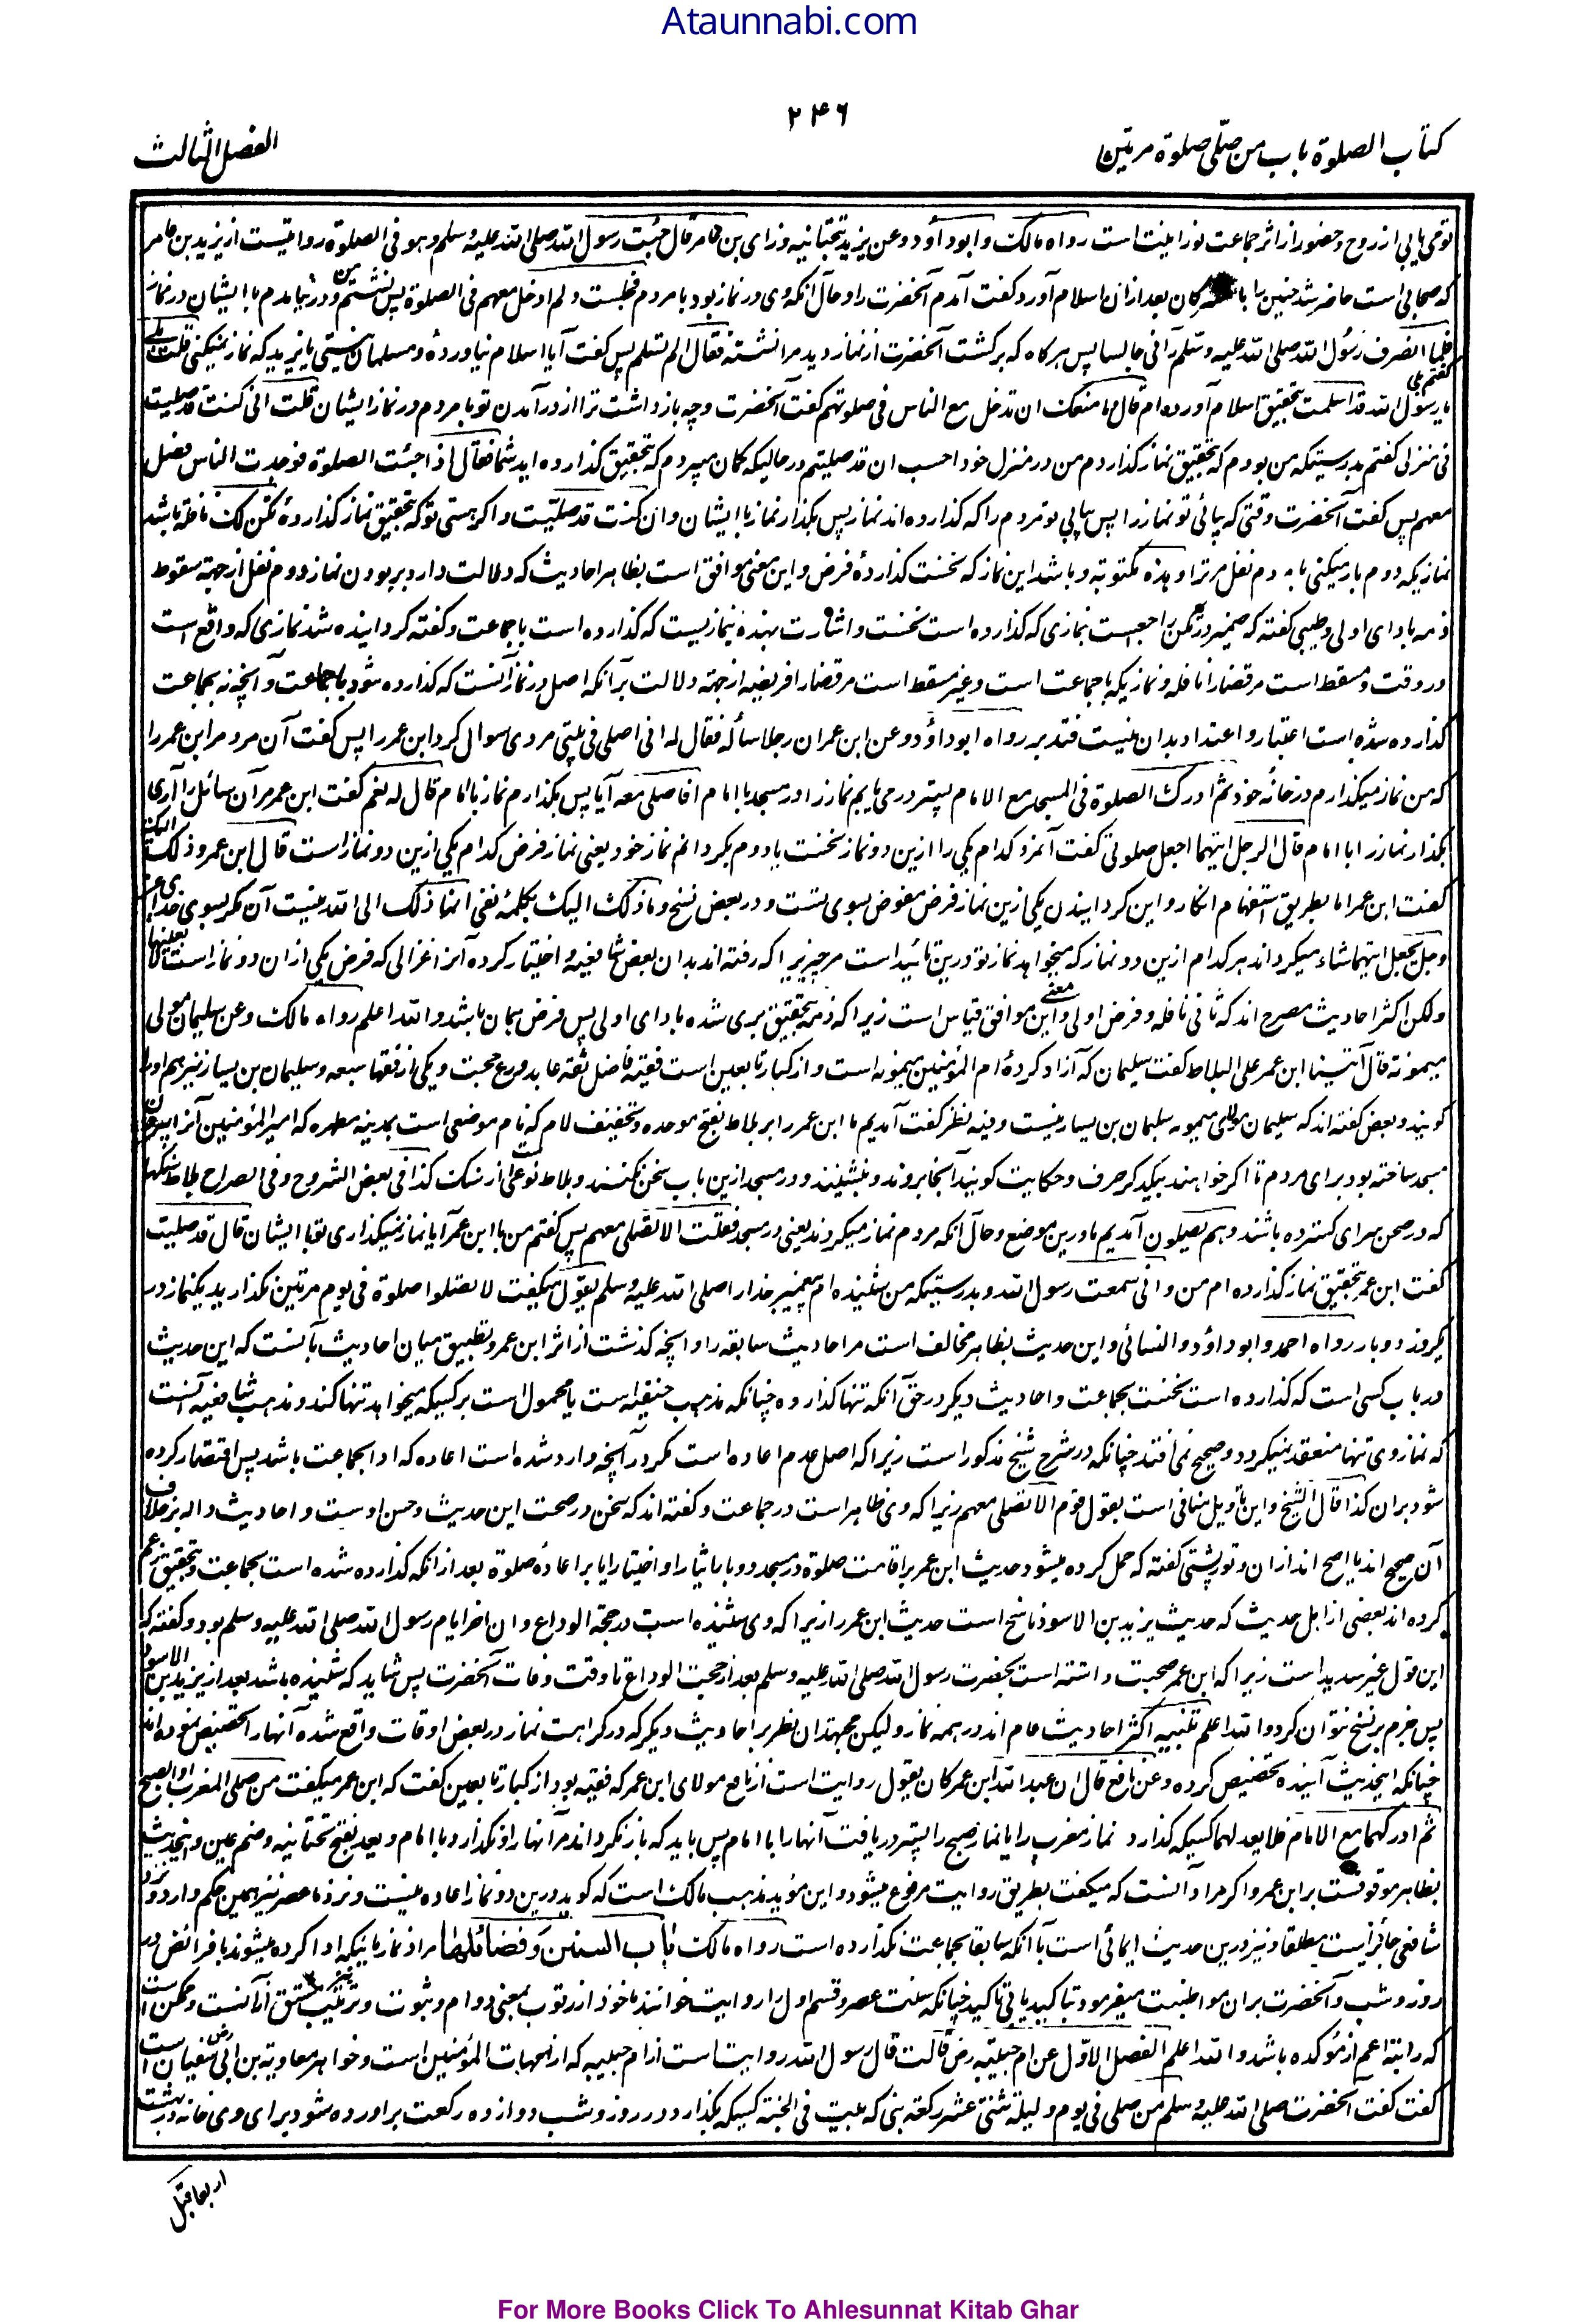 Ataunnabi.com
۲۴۶
کتاب الصلوة باب من صلّی صلوة مرتین
الفصل الثالث
تومی یابی از روح و حضور از اثر جماعت نورانیت است رواه مالک وابوداؤد وعن یزید بتحتانیه وزای بن عامر قال جئت رسول الله صلی الله علیه وسلم وهو فی الصلوة روایتیست از یزید بن عامر
که صحابی است حاضر شد حنین را با مشرکان بعد ازان اسلام آورد گفت آمدم آنحضرت را وحال آنکه وی در نماز بود با مردم فجلست ولم ادخل معهم فی الصلوة پس نشستم من ودر نیامدم با ایشان در نماز
فلما انصرف رسول الله صلی الله علیه وسلم رآنی جالسا پس هرگاه که برگشت آنحضرت از نماز ودید مرا نشسته فقال الم تسلم پس گفت آیا اسلام نیاورده ومسلمان نیستی یا یزید که نماز نمیکنی قلت بلی
یا رسول الله قد اسلمت گفتم بلی بتحقیق اسلام آورده ام قال ما منعک ان تدخل مع الناس فی صلوتهم گفت آنحضرت وچه باز داشت ترا از در آمدن تو با مردم در نماز ایشان قلت انی کنت قد صلیت
فی منزلی گفتم بدرستیکه من بودم که بتحقیق نماز گذاردم من در منزل خود احسب ان قد صلیتم در حالیکه گمان میبردم که بتحقیق گذارده اید شما فقال اذا جئت الصلوة فوجدت الناس فصل
معهم پس گفت آنحضرت وقتی که بیائی تو نماز را پس بیابی تو مردم را که گذارده اند نماز پس بگذار نماز با ایشان وان کنت قد صلیت واگر هستی تو که بتحقیق نماز گذارده تکن لک نافلة باشد
نمازیکه دوم بار میکنی نفل مر ترا وهذه مکتوبة وباشد این نماز که نخست گذاردهٔ فرض واین معنی موافق است بظاهر احادیث که دلالت دارد بر بودن نماز دوم نفل از جهة سقوط
ذمه بادای اولی وطیبی گفته که ضمیر در تکن راجعست بنمازی که گذارده است نخست واشارت بهذه بنمازیست که گذارده است با جماعت وگفته گردانیده شد نمازی که واقع است
در وقت ومسقط است مر قضا را نافله ونمازیکه با جماعت است وغیر مسقط است مر قضا را فریضه از جهة دلالت بر آنکه اصل در نماز آنست که گذارده شود با جماعت وآنچه نه بجماعت
گذارده شده است اعتبار واعتداد بدان نیست فتدبر رواه ابوداؤد وعن ابن عمر ان رجلا سأله فقال له انی اصلی فی بیتی مردی سوال کرد ابن عمر را پس گفت آن مرد مر ابن عمر را
که من نماز میگذارم در خانهٔ خود ثم ادرک الصلوة فی المسجد مع الامام بیستر در می یابم نماز را در مسجد با امام افاصلی معه آیا پس بگذارم نماز با امام قال له نعم گفت ابن عمر مر آن سائل را آری
بگذار نماز را با امام قال الرجل ایتهما اجعل صلوتی گفت آنمرد کدام یکی را ازین دو نماز نخست یا دوم بگردانم نماز خود یعنی نماز فرض کدام یکی ازین دو نماز است قال ابن عمر وذلک الیک
گفت ابن عمر اما بطریق استفهام انکار واین گردانیدن یکی ازین نماز فرض مفوض بسوی تست ودر بعض نسخ وما ذلک الیک بکلمهٔ نفی انما ذلک الی الله نیست آن مگر بسوی خدای عز
وجل یجعل ایتهما شاء میگرداند هر کدام ازین دو نماز که میخواهد نماز تو درین تائید است مر چیزیرا که رفته اند بدان بعض شافعیه واختیار کرده آنرا غزالی که فرض یکی ازان دو نماز است لا بعینها
ولکن اکثر احادیث مصرح اند که ثانی نافله وفرض اولی واین معنی موافق قیاس است زیرا که ذمه بتحقیق بری شده بادای اولی پس فرض همان باشد والله اعلم رواه مالک وعن سلیمان مولی
میمونة قال اتینا ابن عمر علی البلاط گفت سلیمان که آزاد کردهٔ ام المؤمنین میمونه است واز کبار تابعین است فقیه فاضل ثقه عابد ورع حجت ویکی از فقهاء سبعه وسلیمان بن یسار نیز هم او را
گویند وبعض گفته اند که سلیمان مولای میمونه سلیمان بن یسار نیست وفیه نظر گفت آمدیم ما ابن عمر را بر بلاط بفتح موحده وتخفیف لام که نام موضعی است بمدینه مطهره که امیر المؤمنین آنرا بیرون
مسجد ساخته بود برای مردم تا اگر خواهند بیکدیگر حرف وحکایت گویند آنجا بروند وبنشینند ودر مسجد ازین باب سخن نکنند وبلاط نوعی از سنگ کذا فی بعض الشروح وفی الصراح بلاط سنگها
که در صحن سرای گسترده باشند وهم یصلون آمدیم ما درین موضع وحال آنکه مردم نماز میکردند یعنی در مسجد فقلت الا تصلی معهم پس گفتم من با ابن عمر آیا نماز نمیگذاری تو با ایشان قال قد صلیت
گفت ابن عمر بتحقیق نماز گذارده ام من وانی سمعت رسول الله وبدرستیکه من شنیده ام پیغمبر خدا را صلی الله علیه وسلم یقول میگفت لا تصلوا صلوة فی یوم مرتین نگذارید یکنماز در
یکروز دوبار رواه احمد وابوداؤد والنسائی واین حدیث بظاهر مخالف است مر احادیث سابقه را وآنچه گذشت از اثر ابن عمر وتطبیق میان احادیث بآنست که این حدیث
در باب کسی است که گذارده است نخست بجماعت واحادیث دیگر در حق آنکه تنها گذارده چنانکه مذهب حنفیه است یا محمول است بر کسیکه میخواهد تنها کند ومذهب شافعیه آنست
که نماز وی تنها منعقد نمیگردد وصحیح نمی افتد چنانکه در شرح شیخ مذکور است زیرا که اصل عدم اعاده است مگر در آنچه وارد شده است اعاده که آن با جماعت باشد پس اقتصار کرده
شود بران کذا قال الشیخ واین تاویل منافی است بقول قوم الا تصلی معهم زیرا که وی ظاهر است در جماعت وگفته اند که سخن در صحت این حدیث وحسن اوست واحادیث داله بر خلاف
آن صحیح اند یا اصح اند ازان وتورپشتی گفته که حمل کرده میشود حدیث ابن عمر بر اقامت صلوة در مسجد دوبار ایثارا واختیارا یا بر اعادهٔ صلوة بعد ازانکه گذارده شده است بجماعت وبتحقیق زعم
کرده اند بعضی از اهل حدیث که حدیث یزید بن الاسود ناسخ است حدیث ابن عمر را زیرا که وی شنیده است در حجة الوداع وان اخر ایام رسول الله صلی الله علیه وسلم بود وگفته که
این قول غیر سدید است زیرا که ابن عمر صحبت داشته است بحضرت رسول الله صلی الله علیه وسلم بعد از حجت الوداع تا وقت وفات آنحضرت پس شاید که شنیده باشد بعد از یزید بن الاسود
پس جزم بر نسخ نتوان کرد والله اعلم تنبیه اکثر احادیث عام اند در همه نماز ولیکن مجتهدان نظر بر احادیث دیگر که در کراهت نماز در بعض اوقات واقع شده آنها را تخصیص نموده اند
چنانکه اینحدیث آینده تخصیص کرده وعن نافع قال ان عبد الله ابن عمر کان یقول روایت است از نافع مولای ابن عمر که فقیه بود از کبار تابعین گفت که ابن عمر میگفت من صلی المغرب او الصبح
ثم ادرکهما مع الامام فلا یعد لهما کسیکه گذارد نماز مغرب را یا نماز صبح را بیستر دریافت آنها را با امام پس باید که باز نگرداند مر آنها را ونگذارد با امام ویعد بفتح تحتانیه وضم عین واینحدیث
بظاهر موقوفست بر ابن عمر واگر مراد آنست که میگفت بطریق روایت مرفوع میشود واین مؤید مذهب مالک است که گوید درین دو نماز اعاده نیست ونزد ما عصر نیز همین حکم دارد ونزد
شافعی جائز است مطلقا ونیز درین حدیث ایمائی است بآنکه سابقا بجماعت نگذارده است رواه مالک باب السنن وفضائلها مراد نمازهائیکه ادا کرده میشوند با فرائض در
روز وشب وآنحضرت بران مواظبت میفرمود بتاکید یا بی تاکید چنانکه سنت عصر وقسم اول را رواتب خوانند ماخوذ از رتوب بمعنی دوام وثبوت وترتیب نیز مشتق ازآنست وممکن است
که راتبه اعم از مؤکده باشد والله اعلم الفصل الاوّل عن ام حبیبة رض قالت قال رسول الله روایت است از ام حبیبه که از امهات المؤمنین است وخواهر معاویة بن ابی سفیان رض است
گفت گفت آنحضرت صلی الله علیه وسلم من صلی فی یوم ولیلة ثنتی عشر رکعة بنی له بیت فی الجنة کسیکه بگذارد در روز وشب دوازده رکعت برآورده شود برای وی خانه در بهشت
اربعا قبل
For More Books Click To Ahlesunnat Kitab Ghar